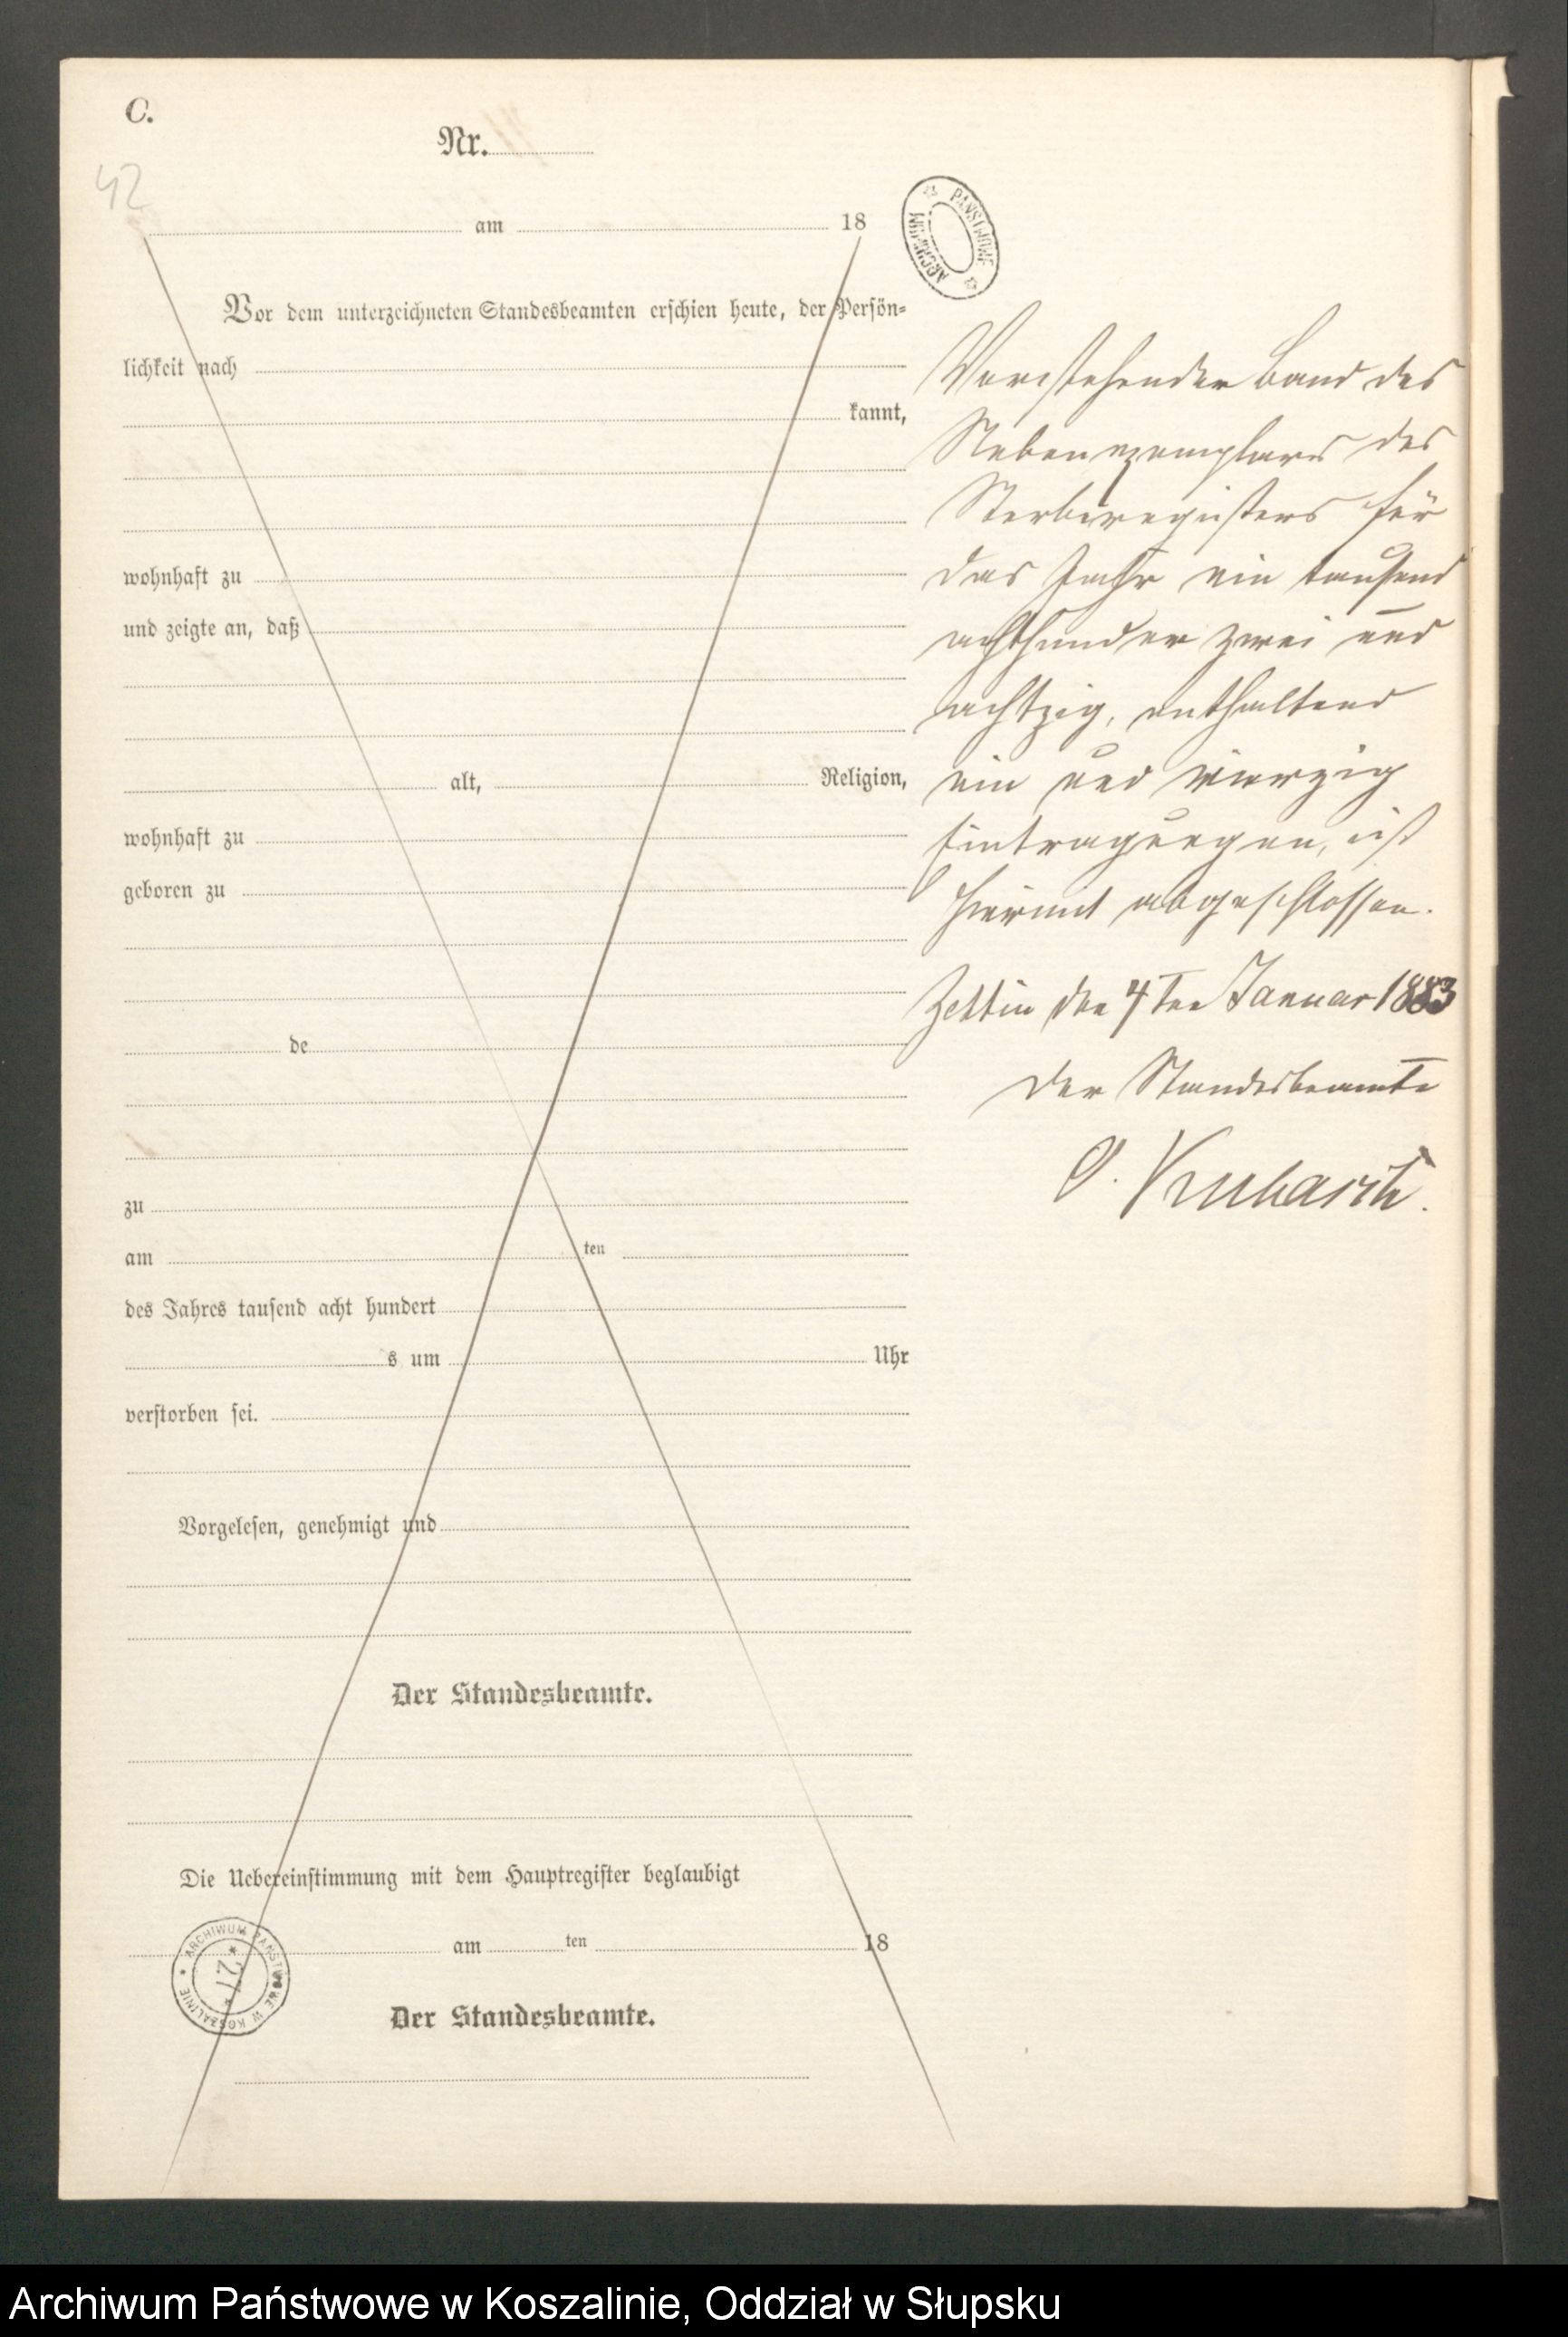 C.
Nr.
42
am 18
ARCHIWUM PAŃSTWOWE
Vor dem unterzeichneten Standesbeamten erschien heute, der Persön-
lichkeit nach
kannt,
wohnhaft zu
und zeigte an, daß
alt, Religion,
wohnhaft zu
geboren zu
de
zu
am ten
des Jahres tausend acht hundert
s um Uhr
verstorben sei.
Vorgelesen, genehmigt und
Der Standesbeamte.
Die Uebereinstimmung mit dem Hauptregister beglaubigt
am ten 18
ARCHIWUM PAŃSTWOWE W KOSZALINIE
27
Der Standesbeamte.
Vorstehender Band des
Nebenexemplars des
Sterberegisters für
das Jahr ein tausend
achthunder zwei und
achtzig, enthaltend
ein und vierzig
Eintragungen, ist
hiermit abgeschlossen.
Zettin den 4ten Januar 1883
Der Standesbeamte
Archiwum Państwowe w Koszalinie, Oddział w Słupsku